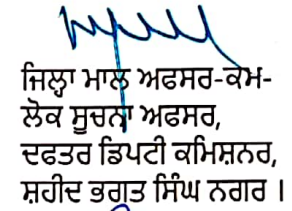 ਜਿਲ੍ਹਾ ਮਾਲ ਅਫਸਰ-ਕਮ-
ਲੋਕ ਸੂਚਨਾ ਅਫਸਰ,
ਦਫਤਰ ਡਿਪਟੀ ਕਮਿਸ਼ਨਰ,
ਸ਼ਹੀਦ ਭਗਤ ਸਿੰਘ ਨਗਰ ।